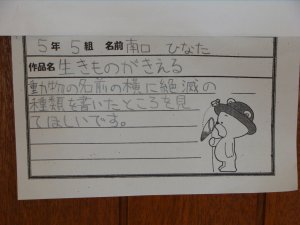 5年 5組 名前 南口 ひなた
作品名 生きものがきえる
動物の名前の横に絶滅の
種類を書いたところを見
てほしいです。